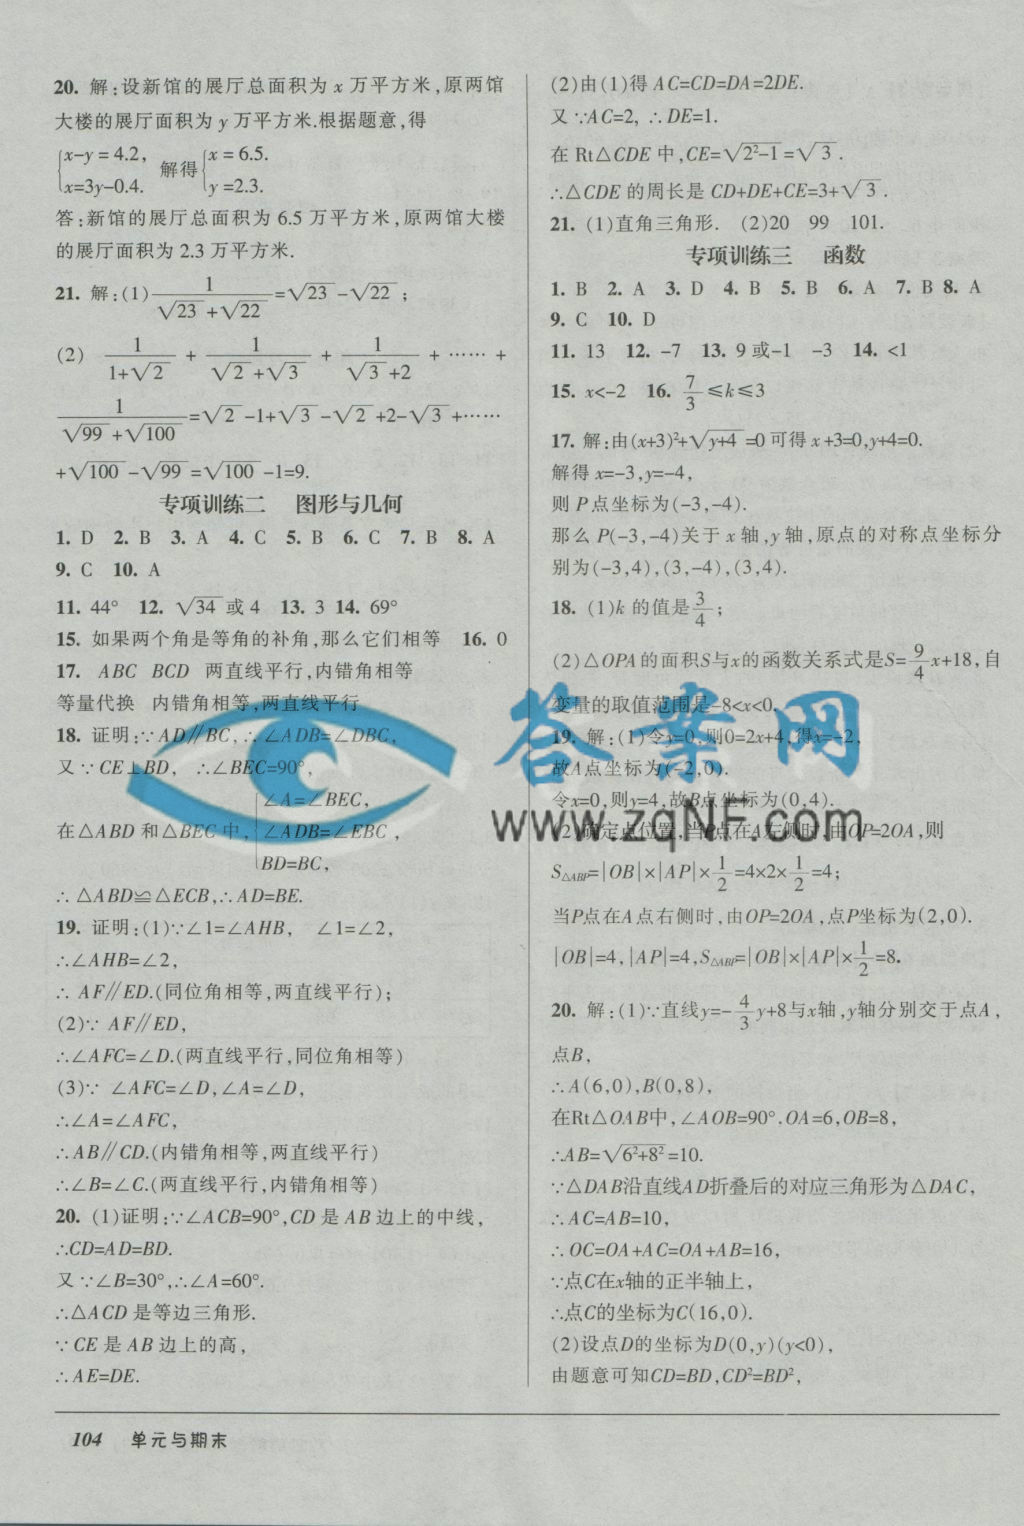 20. 解:设新馆的展厅总面积为 x 万平方米,原两馆
大楼的展厅面积为 y 万平方米.根据题意,得
{x-y=4.2, x=3y-0.4. 解得{x=6.5. y=2.3.
答:新馆的展厅总面积为 6.5 万平方米,原两馆大楼
的展厅面积为 2.3 万平方米.
21. 解:(1) 1/(√23+√22)=√23-√22;
(2) 1/(1+√2) + 1/(√2+√3) + 1/(√3+2) + …… +
1/(√99+√100)=√2-1+√3-√2+2-√3+……
+√100-√99=√100-1=9.
专项训练二 图形与几何
1. D 2. B 3. A 4. C 5. B 6. C 7. B 8. A
9. C 10. A
11. 44° 12. √34 或 4 13. 3 14. 69°
15. 如果两个角是等角的补角,那么它们相等 16. 0
17. ABC BCD 两直线平行,内错角相等
等量代换 内错角相等,两直线平行
18. 证明:∵AD∥BC,∴∠ADB=∠DBC,
又∵CE⊥BD, ∴∠BEC=90°,
在△ABD 和△BEC 中,{∠A=∠BEC, ∠ADB=∠EBC, BD=BC,
∴△ABD≌△ECB,∴AD=BE.
19. 证明:(1)∵∠1=∠AHB, ∠1=∠2,
∴∠AHB=∠2,
∴ AF∥ED.(同位角相等,两直线平行);
(2)∵ AF∥ED,
∴∠AFC=∠D.(两直线平行,同位角相等)
(3)∵ ∠AFC=∠D,∠A=∠D,
∴∠A=∠AFC,
∴AB∥CD.(内错角相等,两直线平行)
∴∠B=∠C.(两直线平行,内错角相等)
20. (1)证明:∵∠ACB=90°,CD 是 AB 边上的中线,
∴CD=AD=BD.
又∵∠B=30°,∴∠A=60°.
∴△ACD 是等边三角形.
∵CE 是 AB 边上的高,
∴AE=DE.
(2)由(1)得 AC=CD=DA=2DE.
又∵AC=2, ∴DE=1.
在 Rt△CDE 中,CE=√(2²-1)=√3.
∴△CDE 的周长是 CD+DE+CE=3+√3.
21. (1)直角三角形. (2)20 99 101.
专项训练三 函数
1. B 2. A 3. D 4. B 5. B 6. A 7. B 8. A
9. C 10. D
11. 13 12. -7 13. 9或-1 -3 14. <1
15. x<-2 16. 7/3≤k≤3
17. 解:由(x+3)²+√(y+4)=0可得x+3=0,y+4=0.
解得x=-3,y=-4,
则P点坐标为(-3,-4).
那么 P(-3,-4)关于 x 轴,y 轴,原点的对称点坐标分
别为(-3,4),(3,-4),(3,4).
18. (1)k 的值是3/4;
(2)△OPA的面积S与x的函数关系式是S=9/4x+18,自
变量的取值范围是-8<x<0.
19. 解:(1)令y=0,则0=2x+4,得x=-2,
故A点坐标为(-2,0).
令x=0,则y=4,故B点坐标为(0,4).
(2)确定点位置,当P点在A左侧时,由OP=2OA,则
S△ABP=|OB|×|AP|×1/2=4×2×1/2=4;
当P点在A点右侧时,由OP=2OA,点P坐标为(2,0).
|OB|=4,|AP|=4,S△ABP=|OB|×|AP|×1/2=8.
20. 解:(1)∵直线y=-4/3y+8与x轴,y轴分别交于点A,
点B,
∴A(6,0),B(0,8),
在Rt△OAB中,∠AOB=90°.OA=6,OB=8,
∴AB=√(6²+8²)=10.
∵△DAB沿直线AD折叠后的对应三角形为△DAC,
∴AC=AB=10,
∴OC=OA+AC=OA+AB=16,
∵点C在x轴的正半轴上,
∴点C的坐标为C(16,0).
(2)设点D的坐标为D(0,y)(y<0),
由题意可知CD=BD,CD²=BD²,
104 单元与期末
答案网
www.zqNF.com